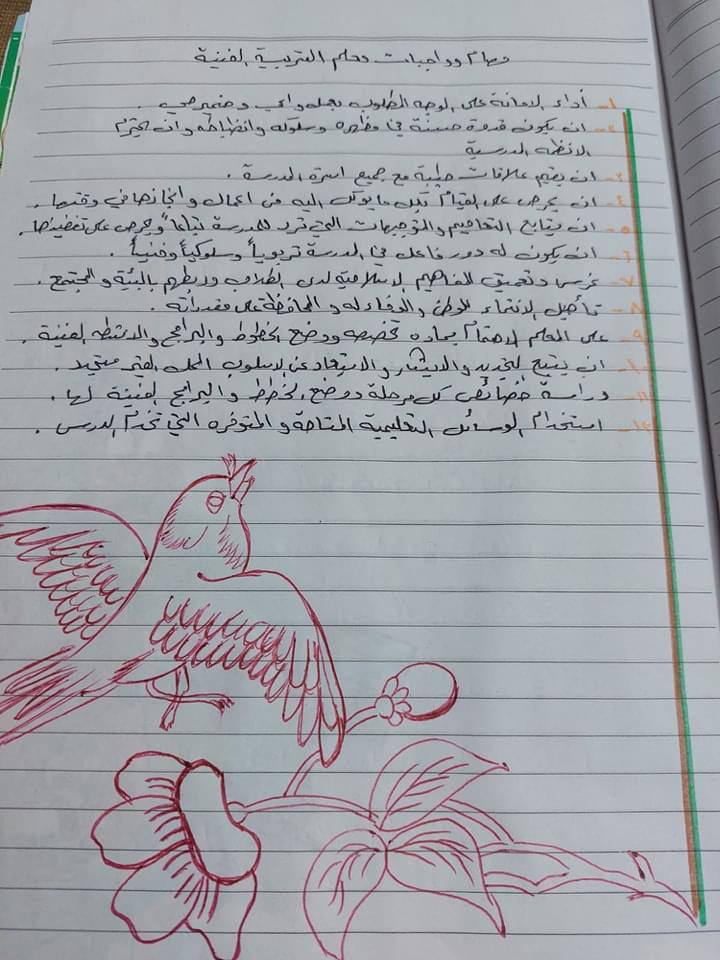 مهام وواجبات معلم التربية الفنية
١- أداء الامانة على الوجه المطلوب بعمله واعي وضمير حي .
٢- ان يكون قدوة حسنة في مظهره وسلوكه وانضباطه وان يحترم
الانظمه المدرسية
٣- ان يقيم علاقات طيبة مع جميع اسرة المدرسة .
٤- ان يحرص على القيام بكل ما يوكل اليه من اعمال وانجازها في وقتها .
٥- ان يتابع التعاميم والتوجيهات التي ترد للمدرسة تباعاً ويحرص على تنفيذها .
٦- ان يكون له دور فاعل في المدرسة تربوياً وسلوكياً وفنياً .
٧- غرس وتعميق المفاهيم الاسلامية لدى الطلاب وربطهم بالبيئة والمجتمع .
٨- تأصيل الانتماء للوطن والوفاء له والمحافظة على مقدراته .
٩- على المعلم الاهتمام بماده تخصصه ووضع الخطوط والبرامج والانشطه الفنية .
١٠- ان يتيح التجديد والابتكار والابتعاد عن الاسلوب الممل الغير متجدد .
١١- دراسة خصائص كل مرحلة ووضع الخطط والبرامج الفنية لها .
١٢- استخدام الوسائل التعليمية المتاحة والمتوفره التي تخدم الدرس .